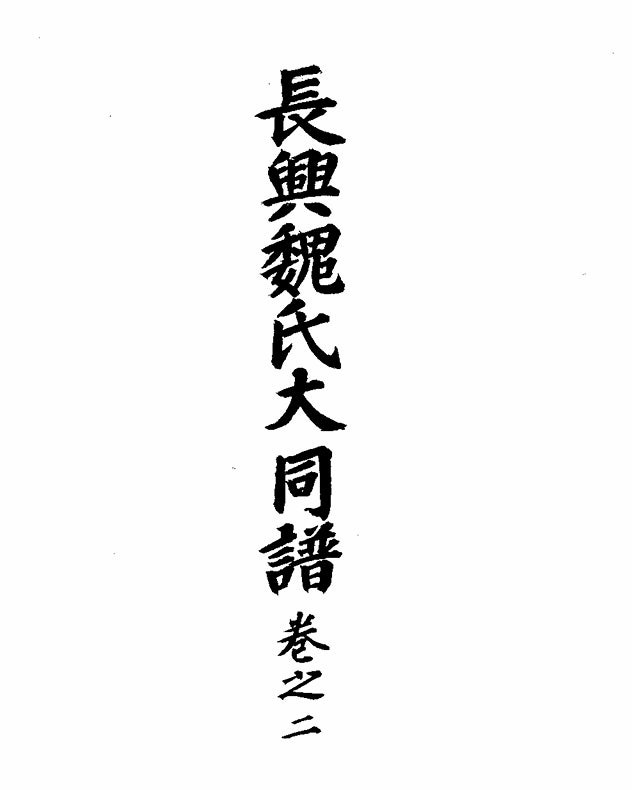 長興魏氏大同譜卷之二